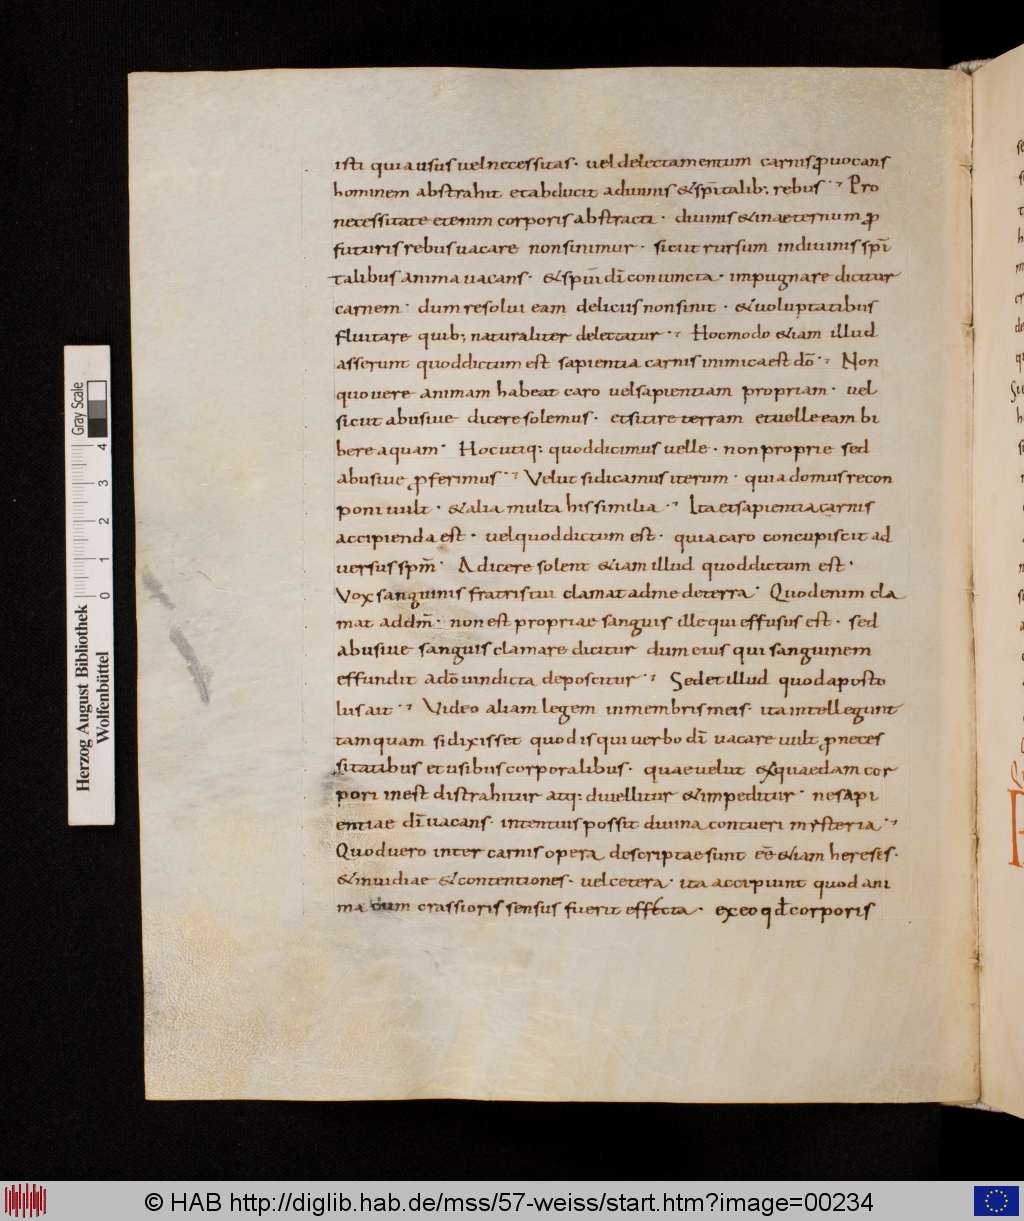 isti quia usus vel necessitas· vel delectamentum carnis ꝓuocans
hominem abstrahit et abducit a diuinis & sp̄italib; rebus·⁊ Pro
necessitate etenim corporis abstracti· diuinis & in aeternum ꝓ
futuris rebus uacare non sinimur· sicut rursum in diuinis sp̄i
talibus anima uacans· & sp̄ui dī coniuncta· impugnare dicitur
carnem· dum resolui eam deliciis non sinit· & uoluptatibus
fluitare quib; naturaliter delectatur·⁊ Hoc modo & iam illud
asserunt quod dictum est sapientia carnis inimica est dō·⁊ Non
quo uere animam habeat caro uel sapientiam propriam· uel
sicut abusiue dicere solemus· et sitire terram et uelle eam bi
bere aquam· Hoc utiq; quod dicimus uelle· non proprie sed
abusiue ꝓferimus·⁊ Velut si dicamus iterum· quia domus recon
poni uult· & alia multa his similia·⁊ Ita et sapientia carnis
accipienda est· uel quod dictum est· quia caro concupiscit ad
uersus sp̄m· A dicere solent & iam illud quod dictum est·
Vox sanguinis fratris tui clamat ad me de terra· Quod enim cla
mat ad dm̄· non est propriae sanguis ille qui effusus est· sed
abusiue sanguis clamare dicitur dum eius qui sanguinem
effundit a dō uindicta deposcitur·⁊ Sed et illud quod aposto
lus ait·⁊ Video aliam legem in membris meis· ita intellegunt
tamquam si dixisset quod is qui uerbo dī uacare uult ꝓ neces
sitatibus et usibus corporalibus· quae uelut ex quaedam cor
pori inest distrahitur atq; diuellitur & impeditur· ne sapi
entiae dī uacans· intentius possit diuina contueri mysteria·⁊
Quod uero inter carnis opera descriptae sunt eē & iam hereses·
& inuidiae & contentiones· uel cetera· ita accipiunt quod ani
ma cum crassioris sensus fuerit effecta· ex eo qđ corporis
Herzog August Bibliothek
Wolfenbüttel
Gray Scale
0 1 2 3 4
© HAB http://diglib.hab.de/mss/57-weiss/start.htm?image=00234